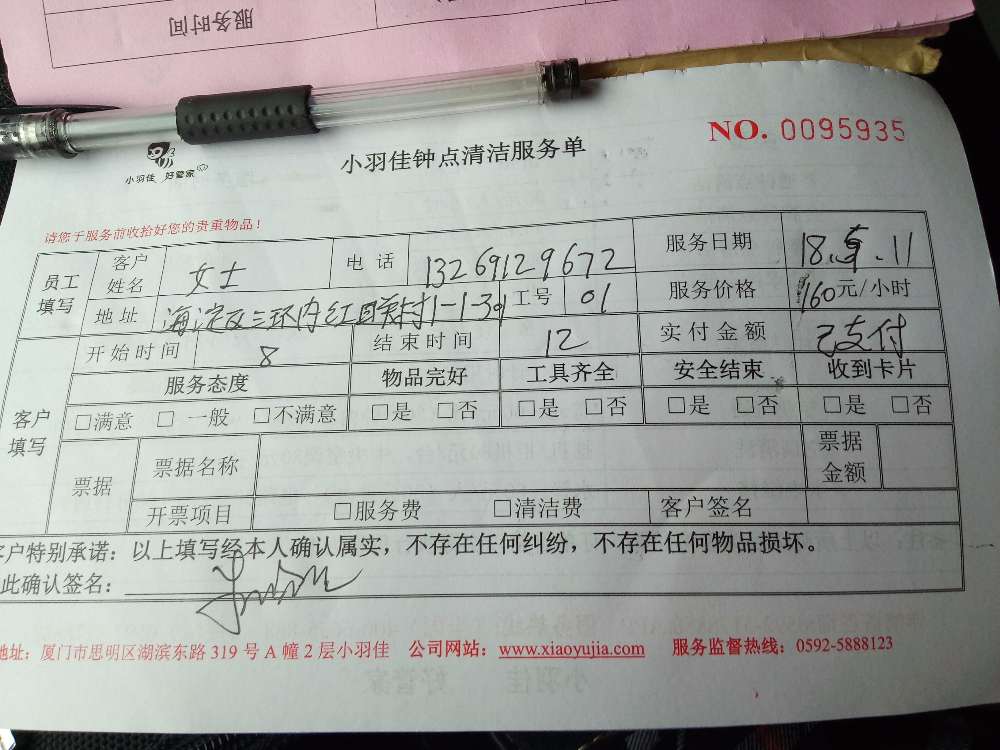 服务时间
小羽佳 好管家
小羽佳钟点清洁服务单
NO. 0095935
请您于服务前收拾好您的贵重物品！
员工填写 客户姓名 女士 电话 13269129672 服务日期 18.5.11
地址 海淀区三环内红联村1-1-301 工号 01 服务价格 160元/小时
客户填写 开始时间 8 结束时间 12 实付金额 已支付
服务态度 物品完好 工具齐全 安全结束 收到卡片
□满意 □一般 □不满意 □是 □否 □是 □否 □是 □否 □是 □否
票据 票据名称 票据金额
开票项目 □服务费 □清洁费 客户签名
客户特别承诺：以上填写经本人确认属实，不存在任何纠纷，不存在任何物品损坏。
此确认签名：
地址：厦门市思明区湖滨东路 319 号 A 幢 2 层小羽佳 公司网站：www.xiaoyujia.com 服务监督热线：0592-5888123